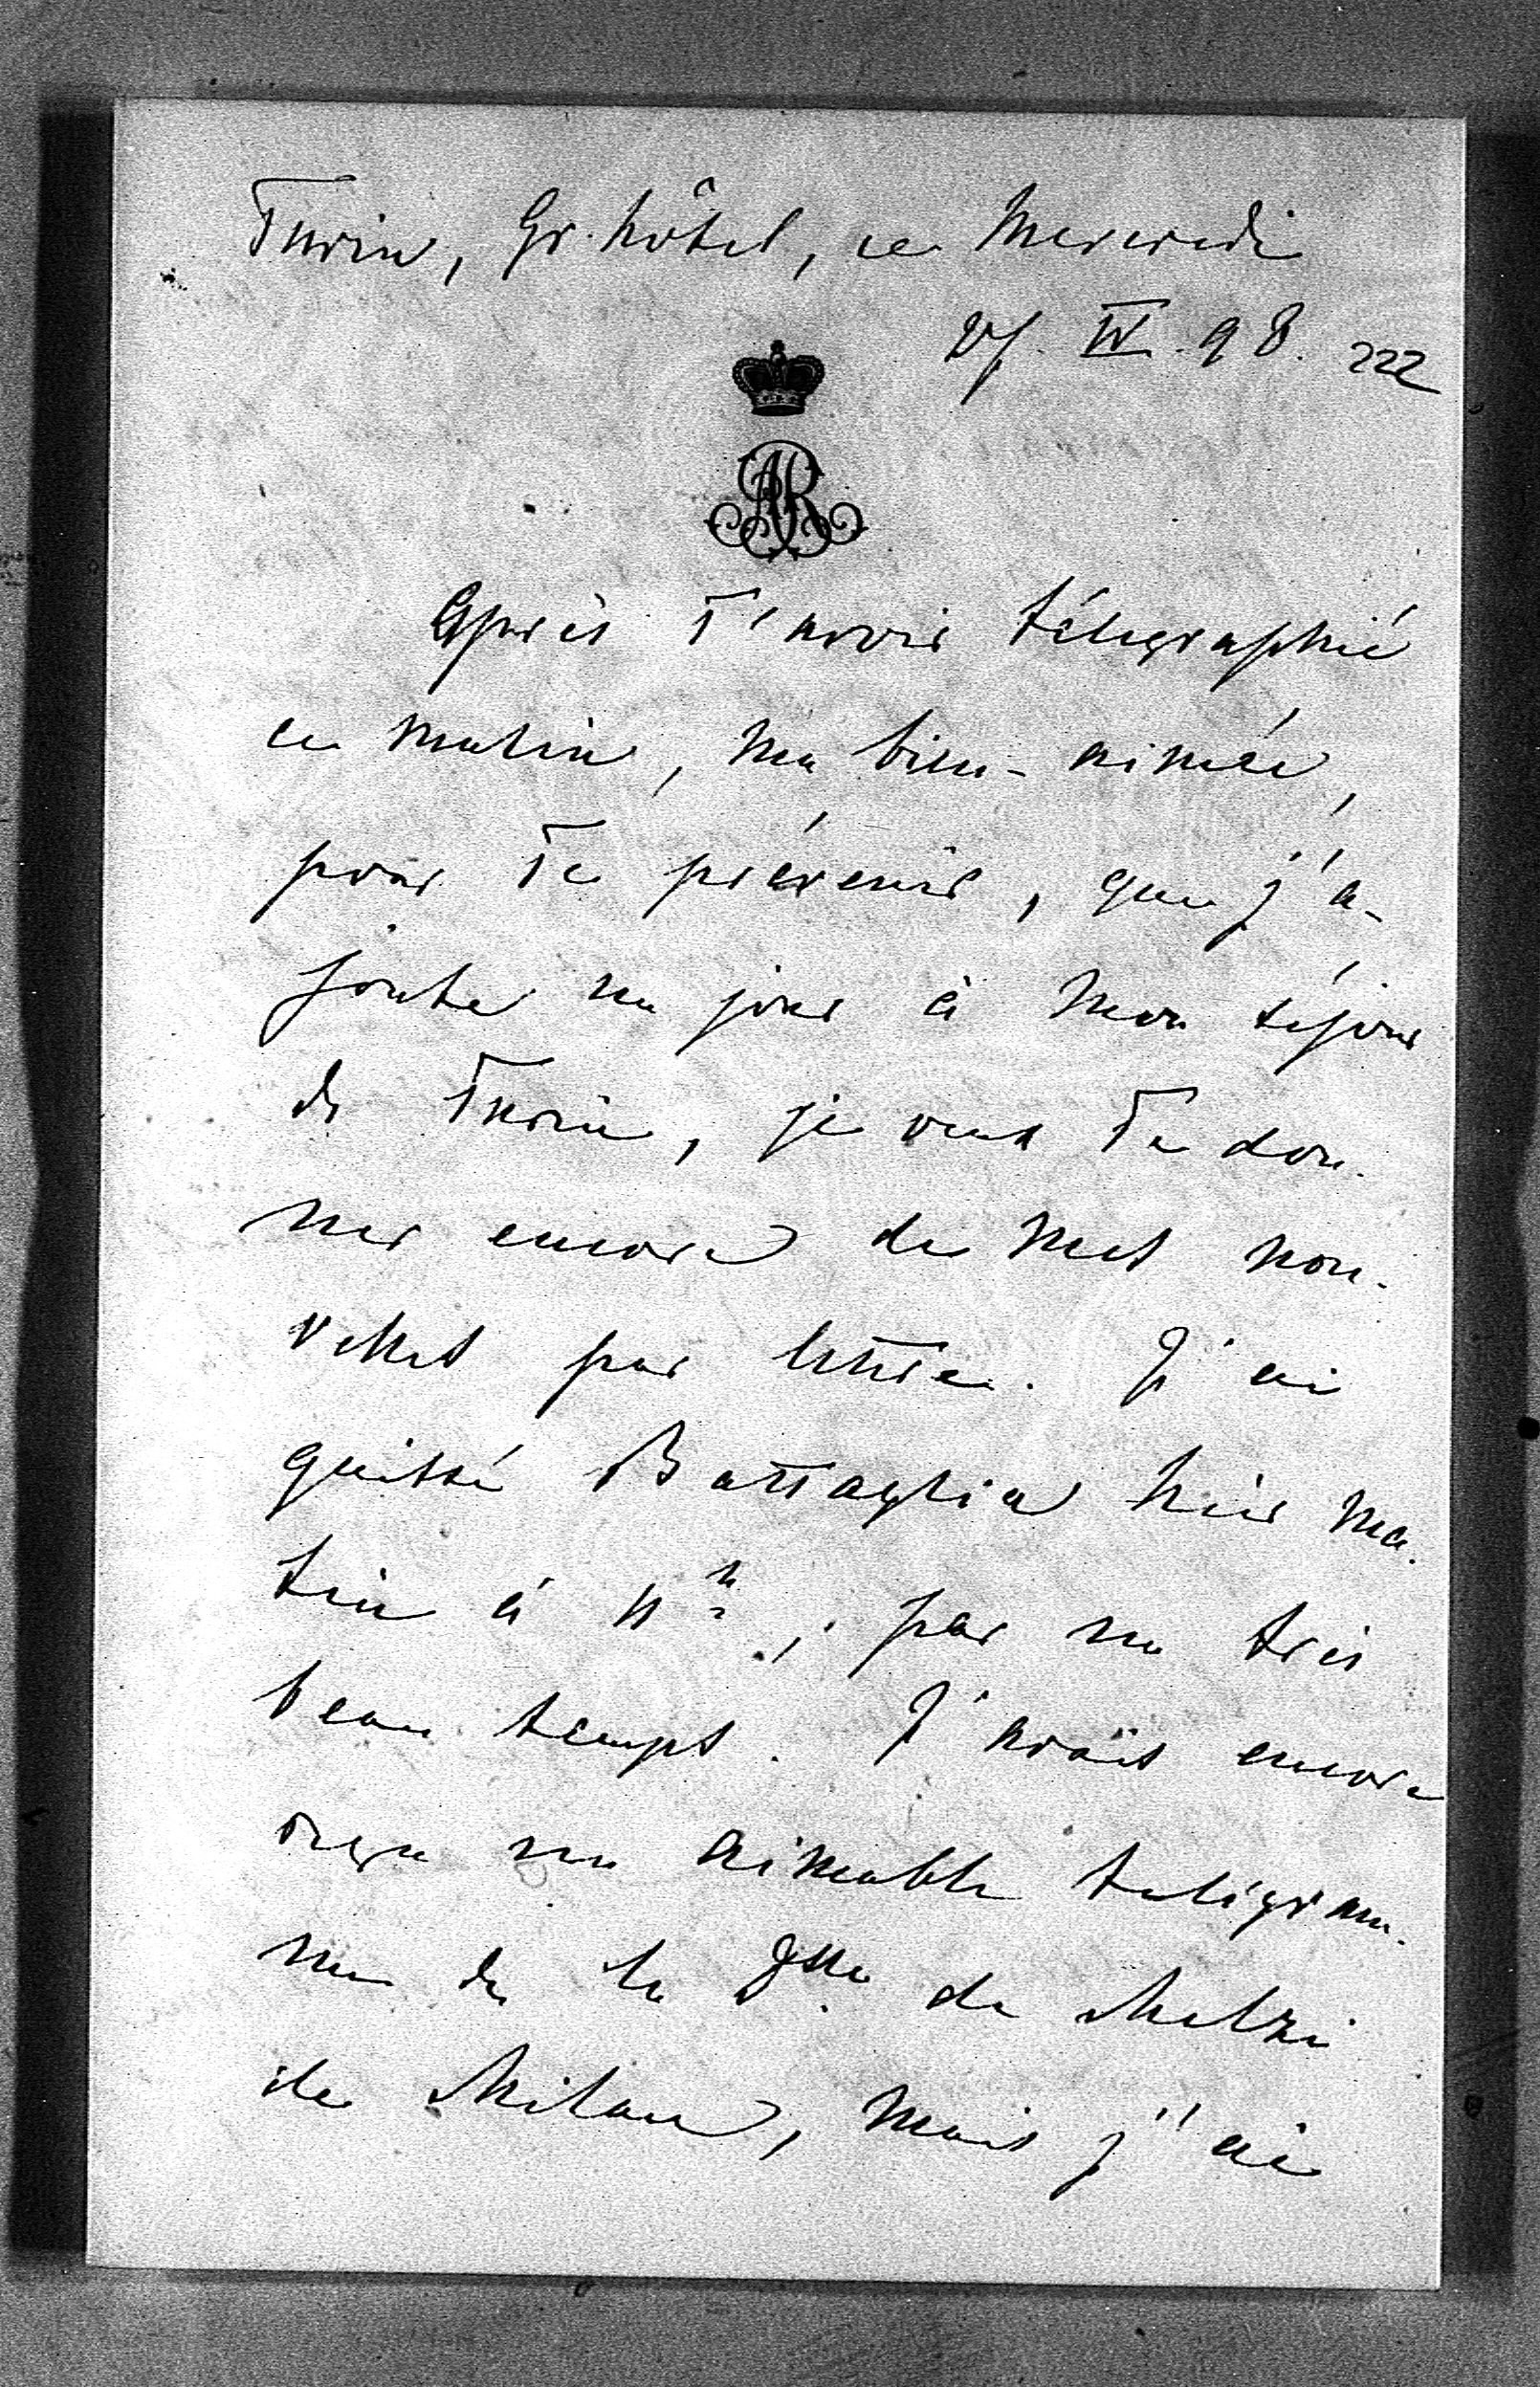 Turin, Gr. hôtel, ce Mercredi
27. IV. 98. 222
AR
Après T'avoir télégraphié
ce matin, ma bien-aimée,
pour Te prévenir, que j'a-
joute un jour à mon séjour
de Turin, je veux Te don-
ner encore de mes nou-
velles par lettre. J'ai
quitté Battaglia hier ma-
tin à 11 h, par un très
beau temps. J'avais encore
reçu un aimable télégram-
me de la Dsse de Melzi
de Milan, mais j'ai